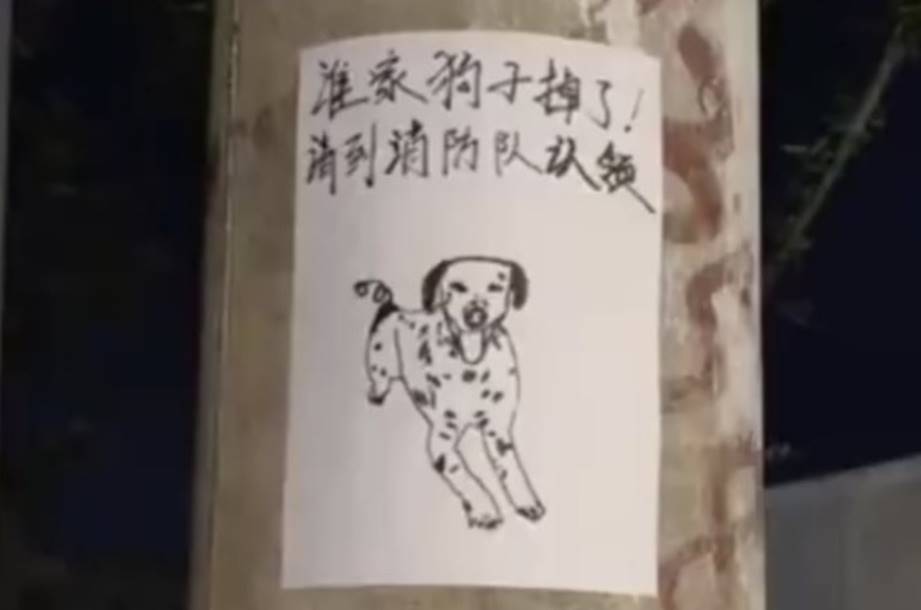 谁家狗子掉了!
请到消防队认领